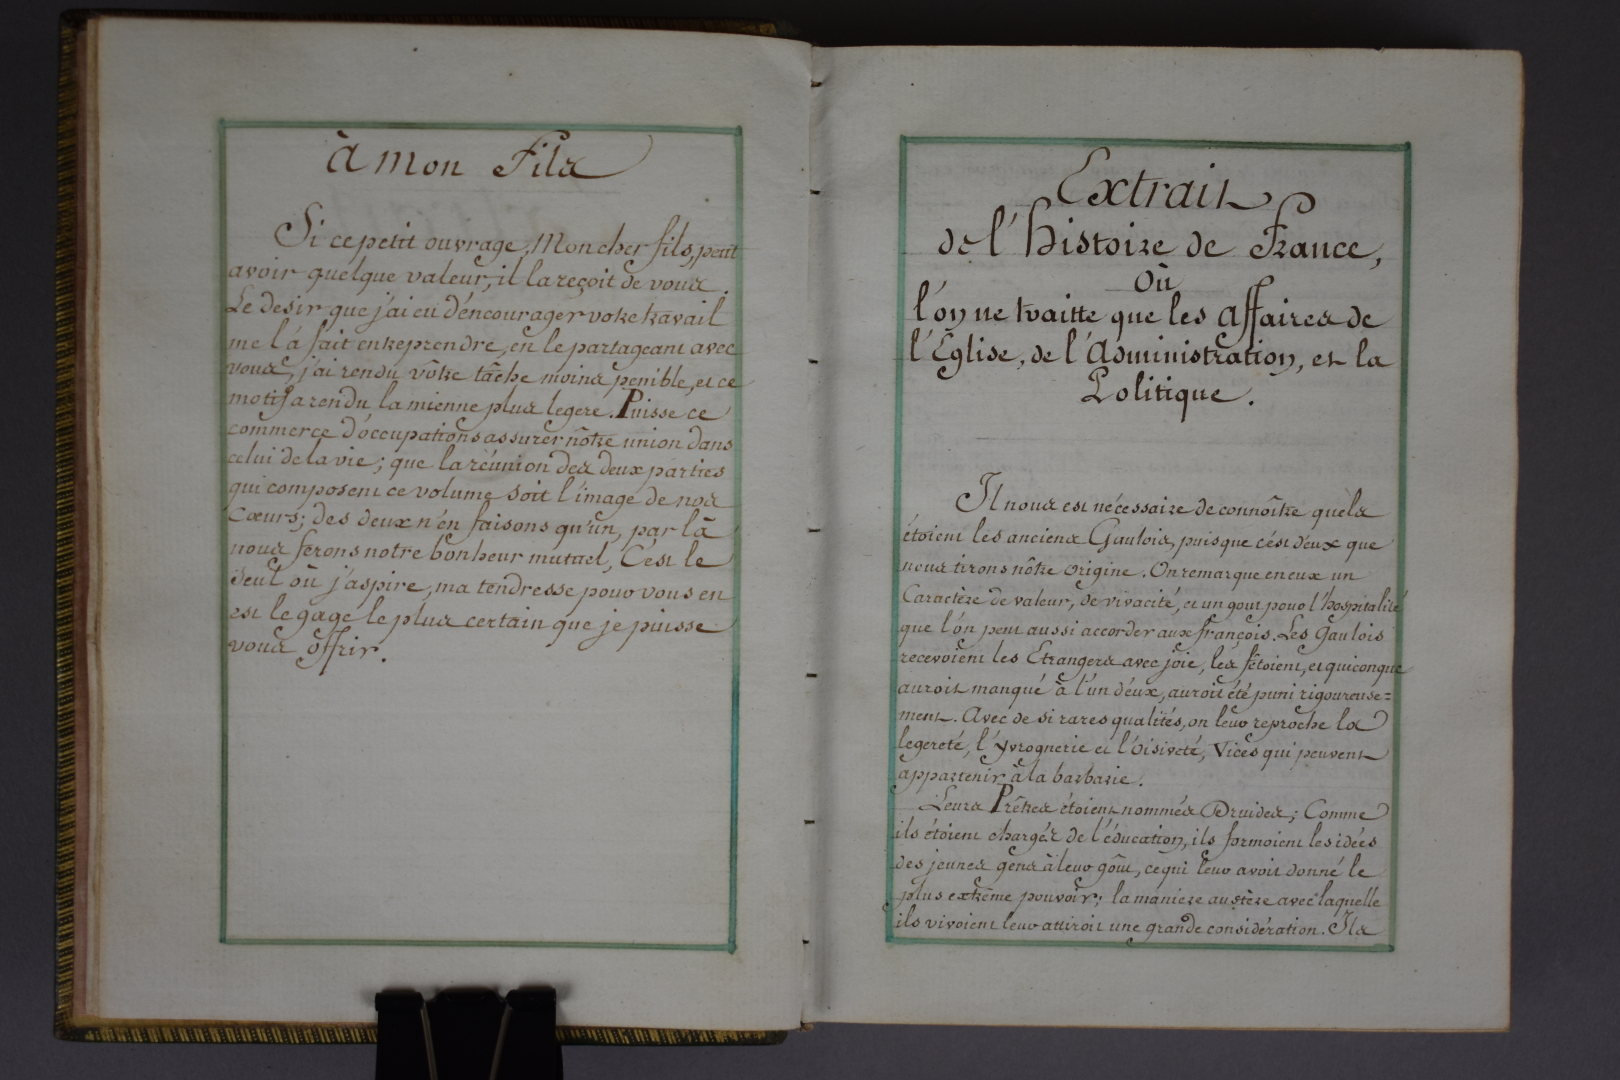 à Mon Fils
Si ce petit ouvrage, Mon cher fils, peut
avoir quelque valeur, il la reçoit de vous.
Le desir que j'ai eu d'éncourager votre travail
me l'a fait entreprendre, en le partageant avec
vous, j'ai rendu vôtre tâche moins penible, et ce
motif a rendu la mienne plus legere. Puisse ce
commerce d'occupations assurer nôtre union dans
celui de la vie; que la réunion des deux parties
qui composent ce volume soit l'image de nos
Cœurs; des deux n'en faisons qu'un, par là
nous ferons notre bonheur mutuel, C'est le
Seul où j'aspire, ma tendresse pour vous en
est le gage le plus certain que je puisse
vous offrir.
Extrait
de l'histoire de France,
Où
l'on ne traitte que les affaires de
l'Eglise, de l'Administration, et la
Politique.
Il nous est nécessaire de connoître quels
étoient les anciens Gaulois, puisque c'ést d'eux que
nous tirons nôtre origine. On remarque en eux un
Caractère de valeur, de vivacité, et un gout pour l'hospitalité
que l'ón peut aussi accorder aux françois. Les Gaulois
recevoient les Etrangers avec joie, les fêtoient, et quiconque
auroit manqué à l'un d'eux, auroit été puni rigoureuse=
ment. Avec de si rares qualités, on leur reproche la
legereté, l'yvrognerie et l'oisiveté, Vices qui peuvent
appartenir à la barbarie.
Leurs Prêtres étoient nommés Druides; Comme
ils étoient chargés de l'éducation, ils formoient les idées
des jeunes gens à leur goût, ce qui leur avoit donné le
plus extrême pouvoir; la maniere austère avec laquelle
ils vivoient leur attiroit une grande considération. Ils